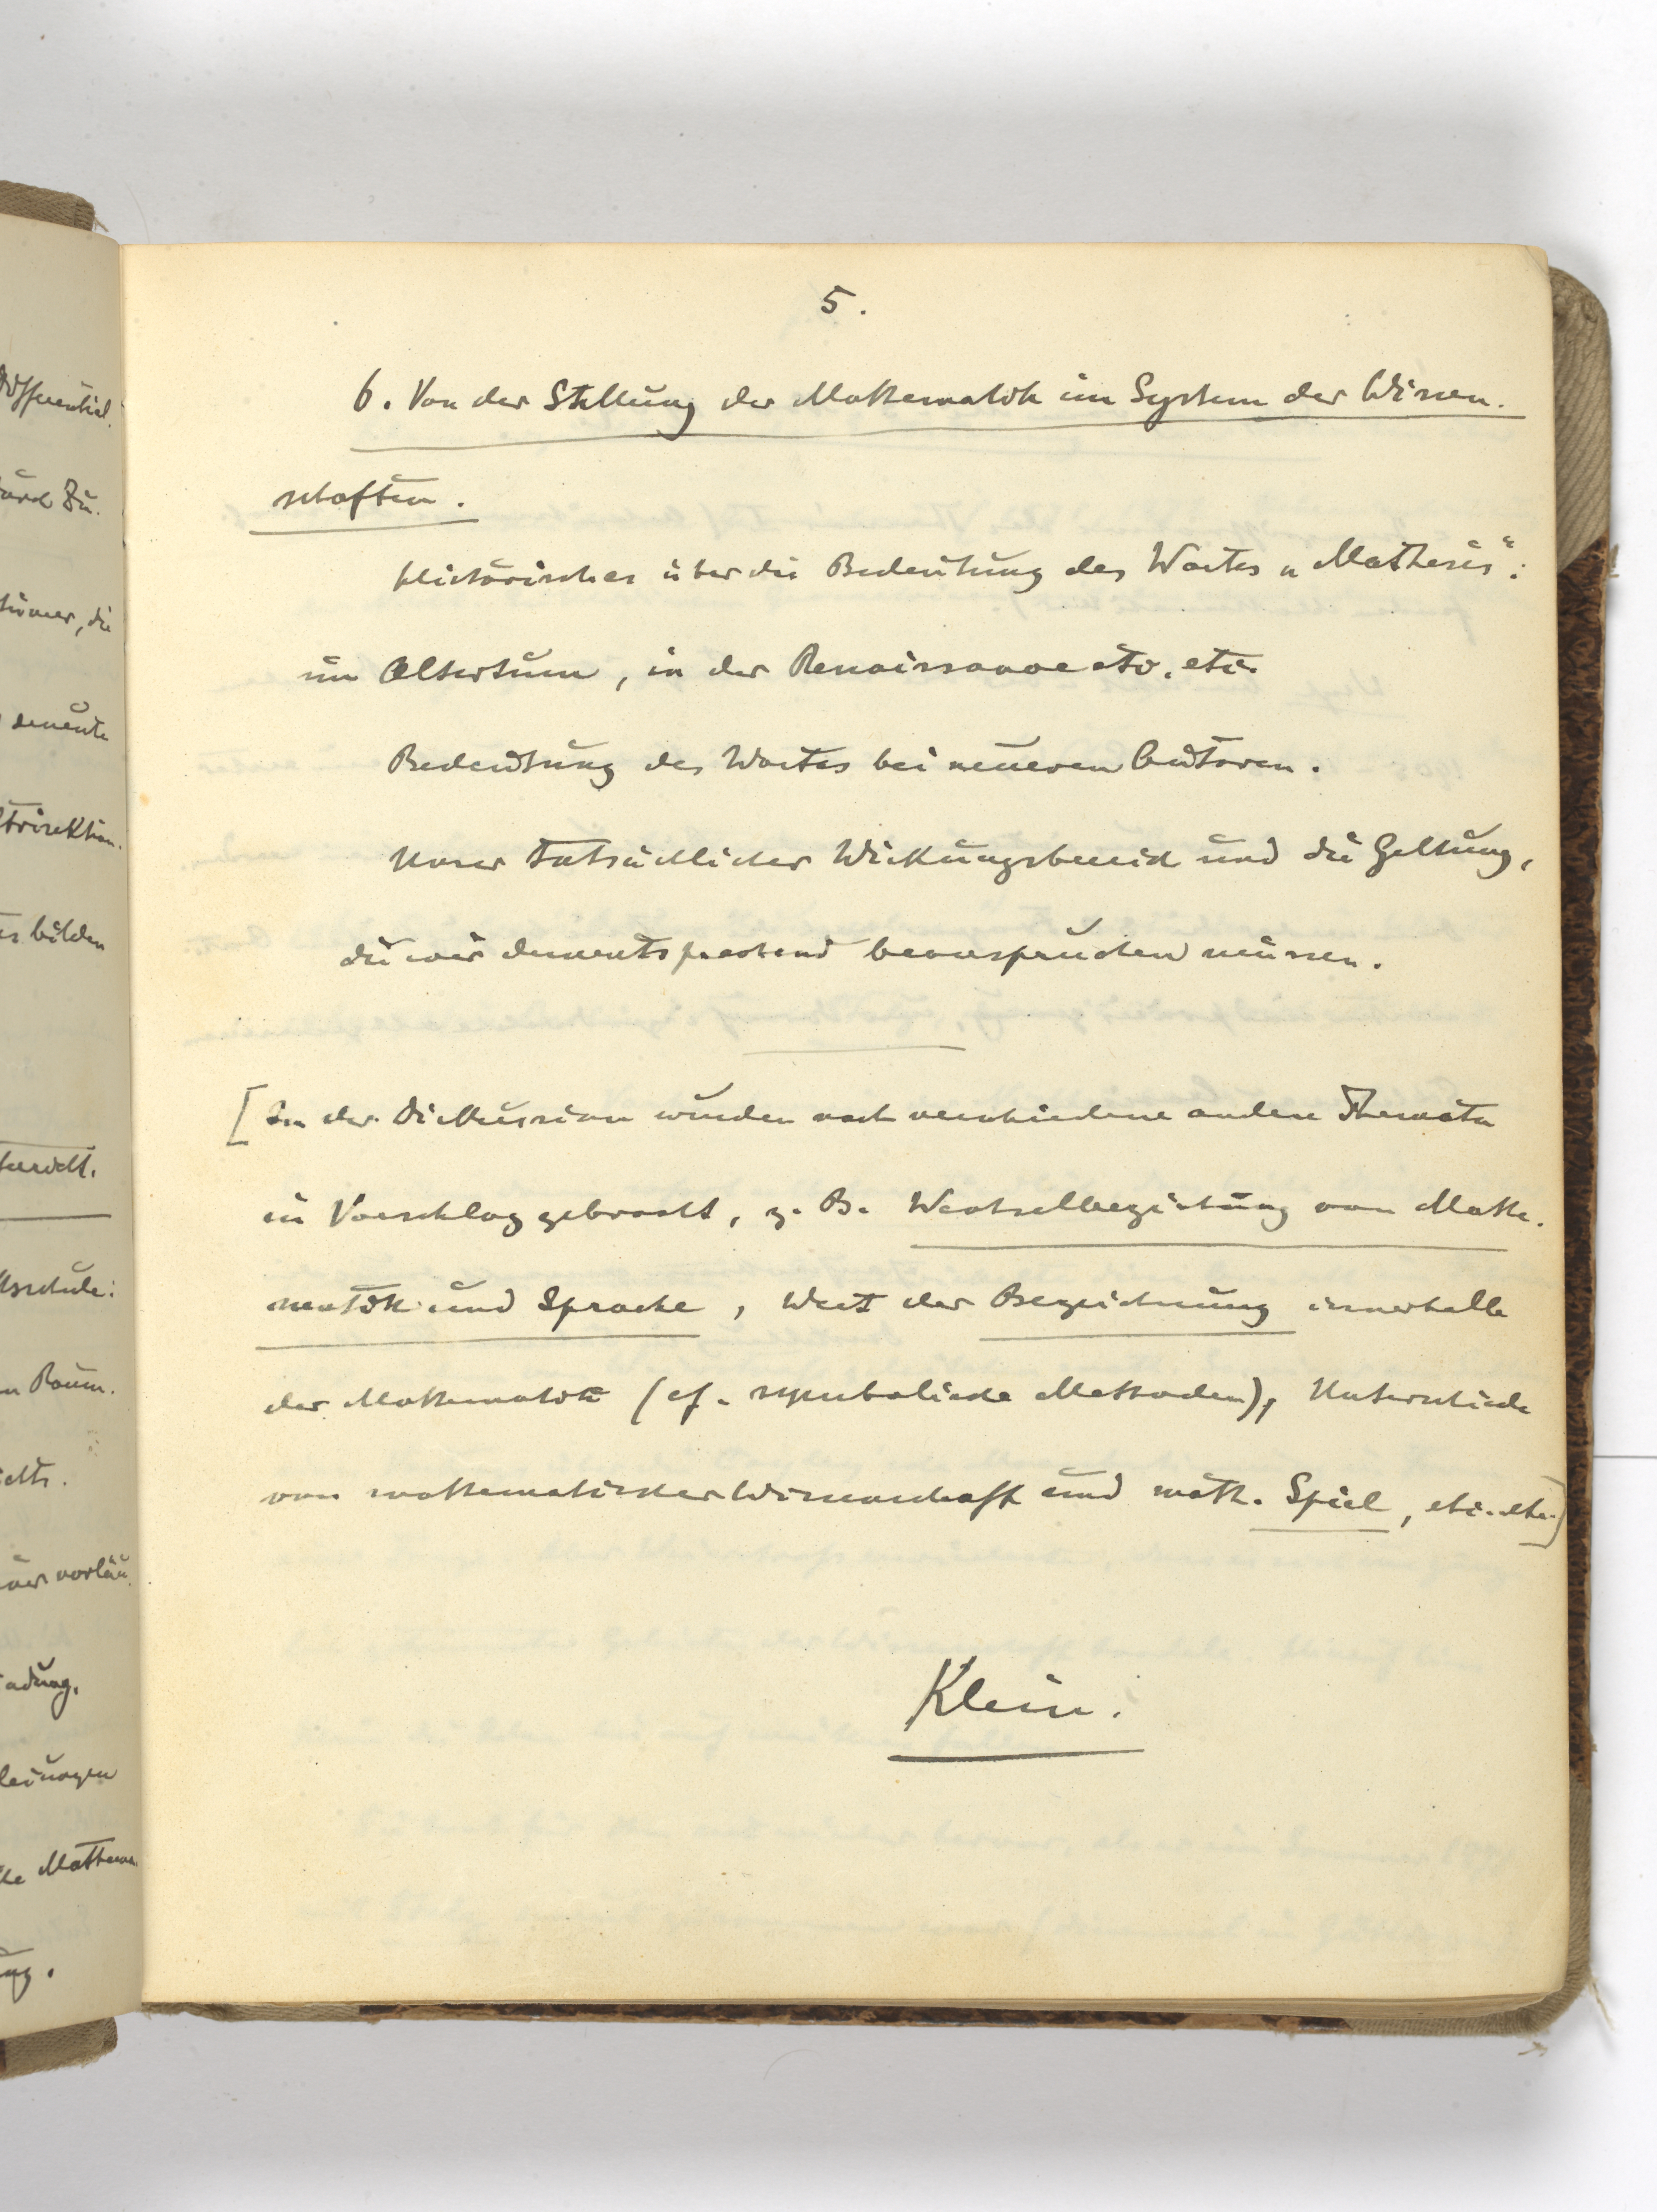 5.
6. Von der Stellung der Mathematik im System der Wissen-
schaften.
Historisches über die Bedeutung des Wortes „Mathesis“:
im Altertum, in der Renaissance etc. etc.
Bedeutung des Wortes bei neueren Autoren.
Unser tatsächlicher Wirkungsbereich und die Geltung,
die wir dementsprechend beanspruchen müssen.
[In der Diskussion wurden noch verschiedene andere Themata
in Vorschlag gebracht, z. B. Wechselbeziehung von Mathe-
matik und Sprache, Wert der Bezeichnung innerhalb
der Mathematik (cf. symbolische Methoden), Unterschiede
von mathematischer Wissenschaft und math. Spiel, etc. etc.]
Klein.